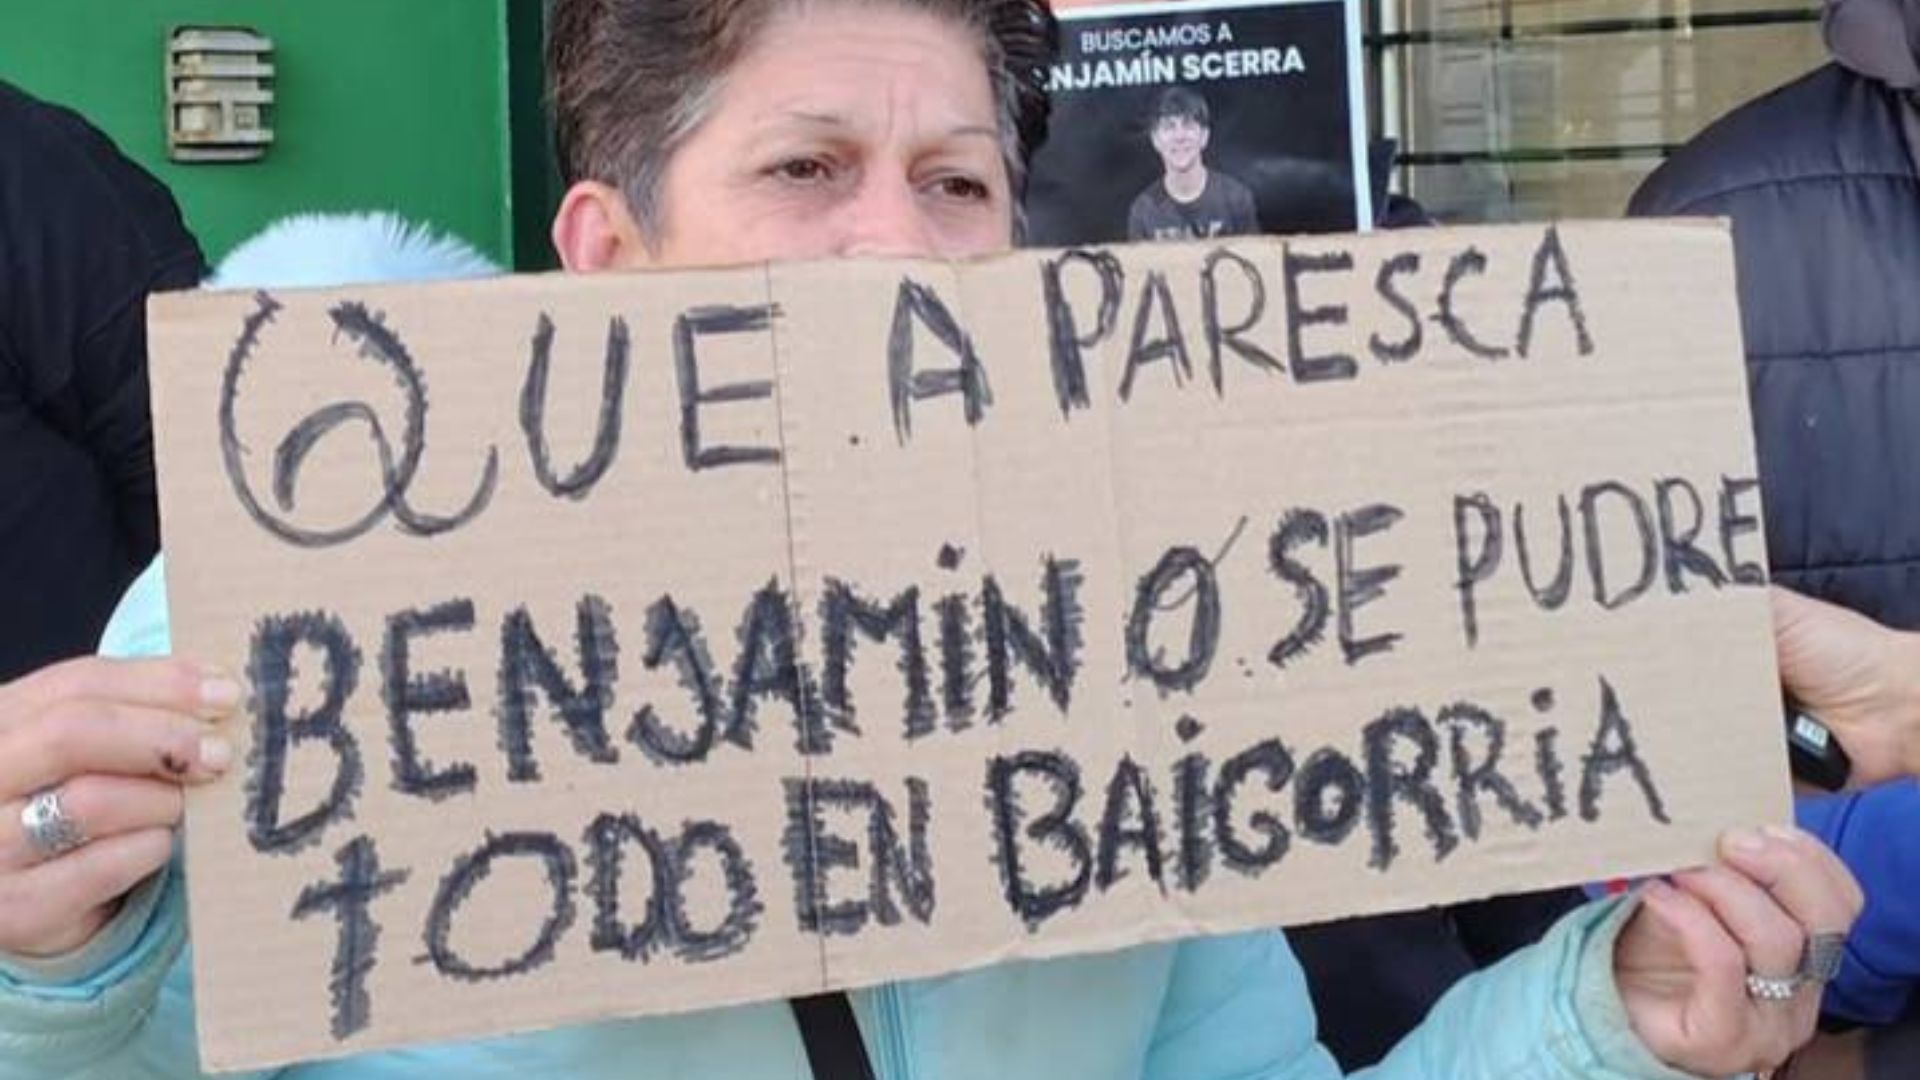 BUSCAMOS A
ENJAMÍN SCERRA
QUE APARESCA
BENJAMiN O SE PUDRE
TODO EN BAiGORRiA